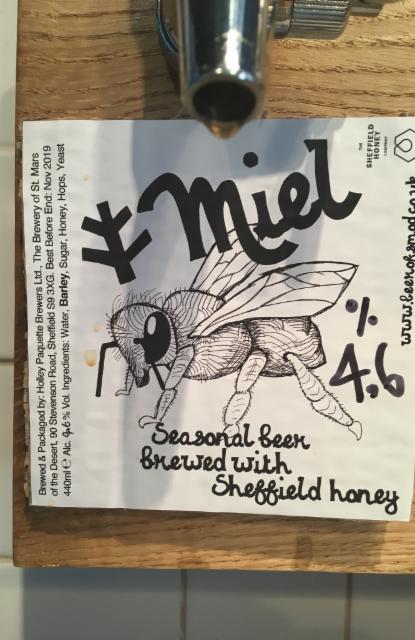 Miel
THE
SHEFFIELD
HONEY
COMPANY
%
4,6
Seasonal beer
brewed with
Sheffield honey
Brewed & Packaged by: Holley Paquette Brewers Ltd. The Brewery of St. Mars
of the Desert, 90 Stevenson Road, Sheffield S9 3XG. Best Before End: Nov 2019
440ml ℮ Alc. % Vol. Ingredients: Water, Barley, Sugar, Honey, Hops, Yeast